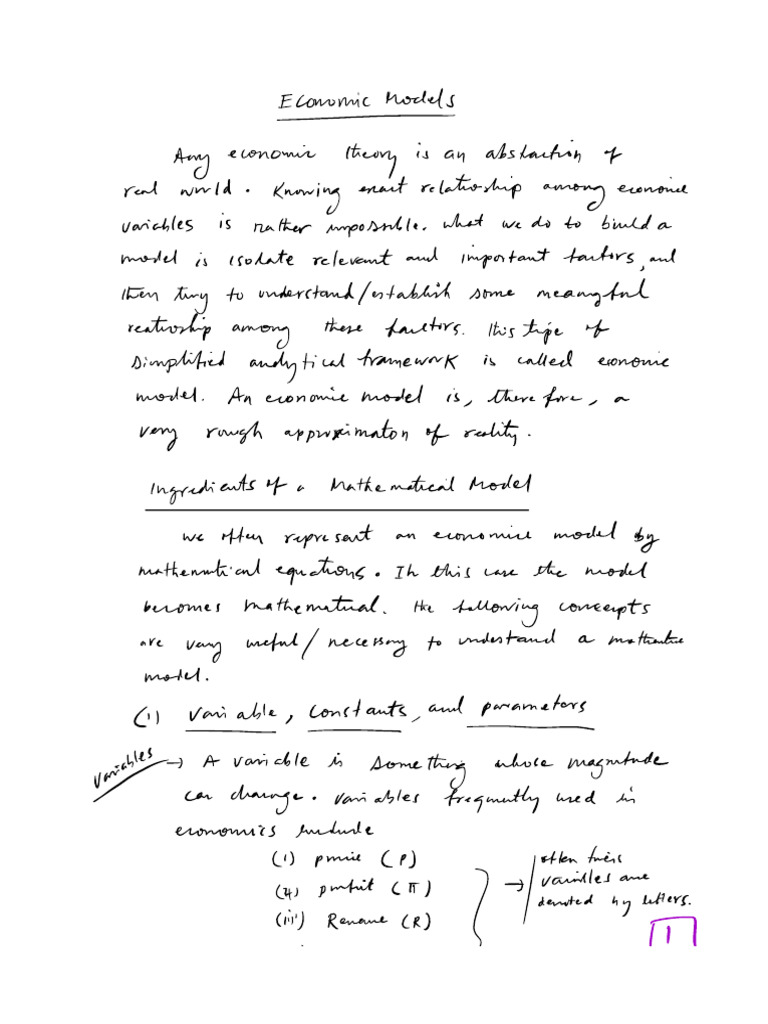 Economic Models
Any economic theory is an abstraction of
real world. Knowing exact relationship among economic
variables is rather impossible. What we do to build a
model is isolate relevant and important factors, and
then try to understand/establish some meaningful
reationship among these factors. This type of
simplified analytical framework is called economic
model. An economic model is, therefore, a
very rough approximation of reality.
Ingredients of a Mathematical Model
We often represent an economic model by
mathematical equations. In this case the model
becomes mathematical. The following concepts
are very useful/necessary to understand a mathematical
model.
(1) Variable, constants, and parameters
Variables → A variable is something whose magnitude
can change. Variables frequently used in
economics include
(i) price (P)
(ii) profit (π)
(iii) Revenue (R)
→ often these
variables are
denoted by letters.
1